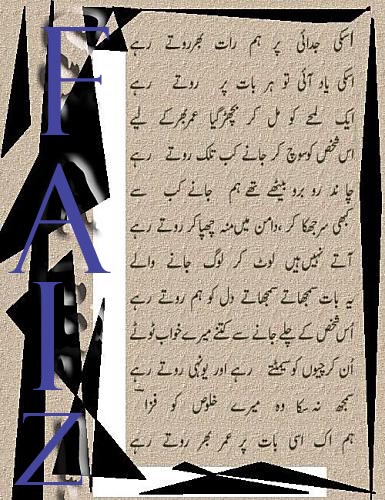 FAIZ
اسکی جدائی پر ہم رات بھر روتے رہے
اسکی یاد آئی تو ہر بات پر روتے رہے
ایک لمحے کو مل کر بچھڑ گیا عمر بھر کے لیے
اس شخص کو سوچ کر جانے کب تلک روتے رہے
چاند رو برو بیٹھے تھے ہم جانے کب سے
کبھی سر جھکا کر ،دامن میں منہ چھپا کر روتے رہے
آتے نہیں ہیں لوٹ کر لوگ جانے والے
یہ بات سمجھاتے سمجھاتے دل کو ہم روتے رہے
اُس شخص کے چلے جانے سے کتنے میرے خواب ٹوٹے
اُن کرچیوں کو سمیٹتے رہے اور یونہی روتے رہے
سمجھ نہ سکا وہ میرے خلوص کو فراز
ہم اک اسی بات پر عمر بھر روتے رہے